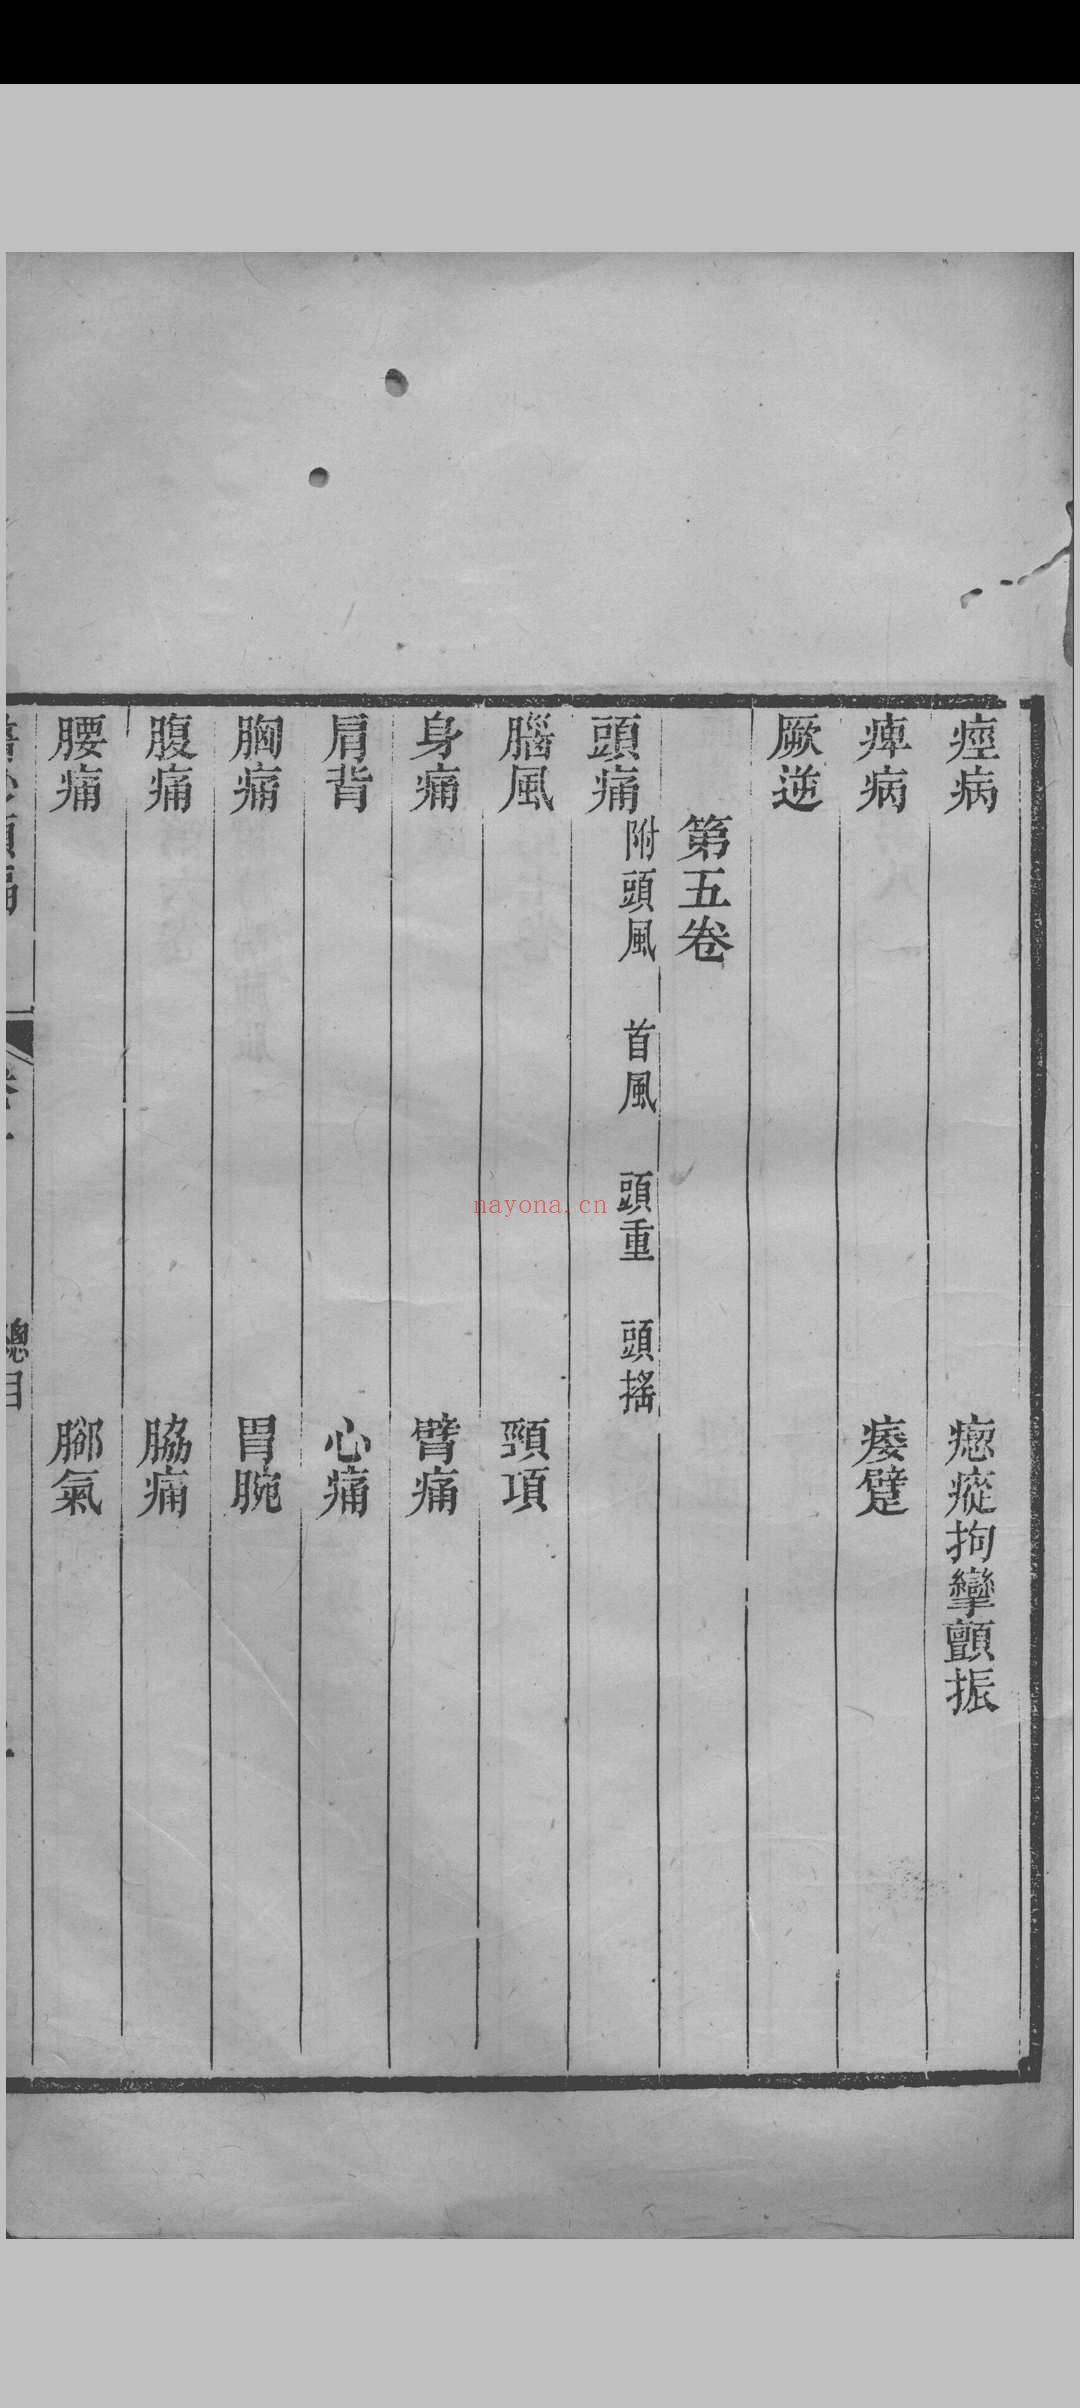 痙病 瘛瘲拘攣顫振
痺病 痿躄
厥逆
第五卷
頭痛 附頭風 首風 頭重 頭搖
腦風 頸項
身痛 臂痛
肩背 心痛
胸痛 胃腕
腹痛 脇痛
腰痛 腳氣
總目
nayona.cn